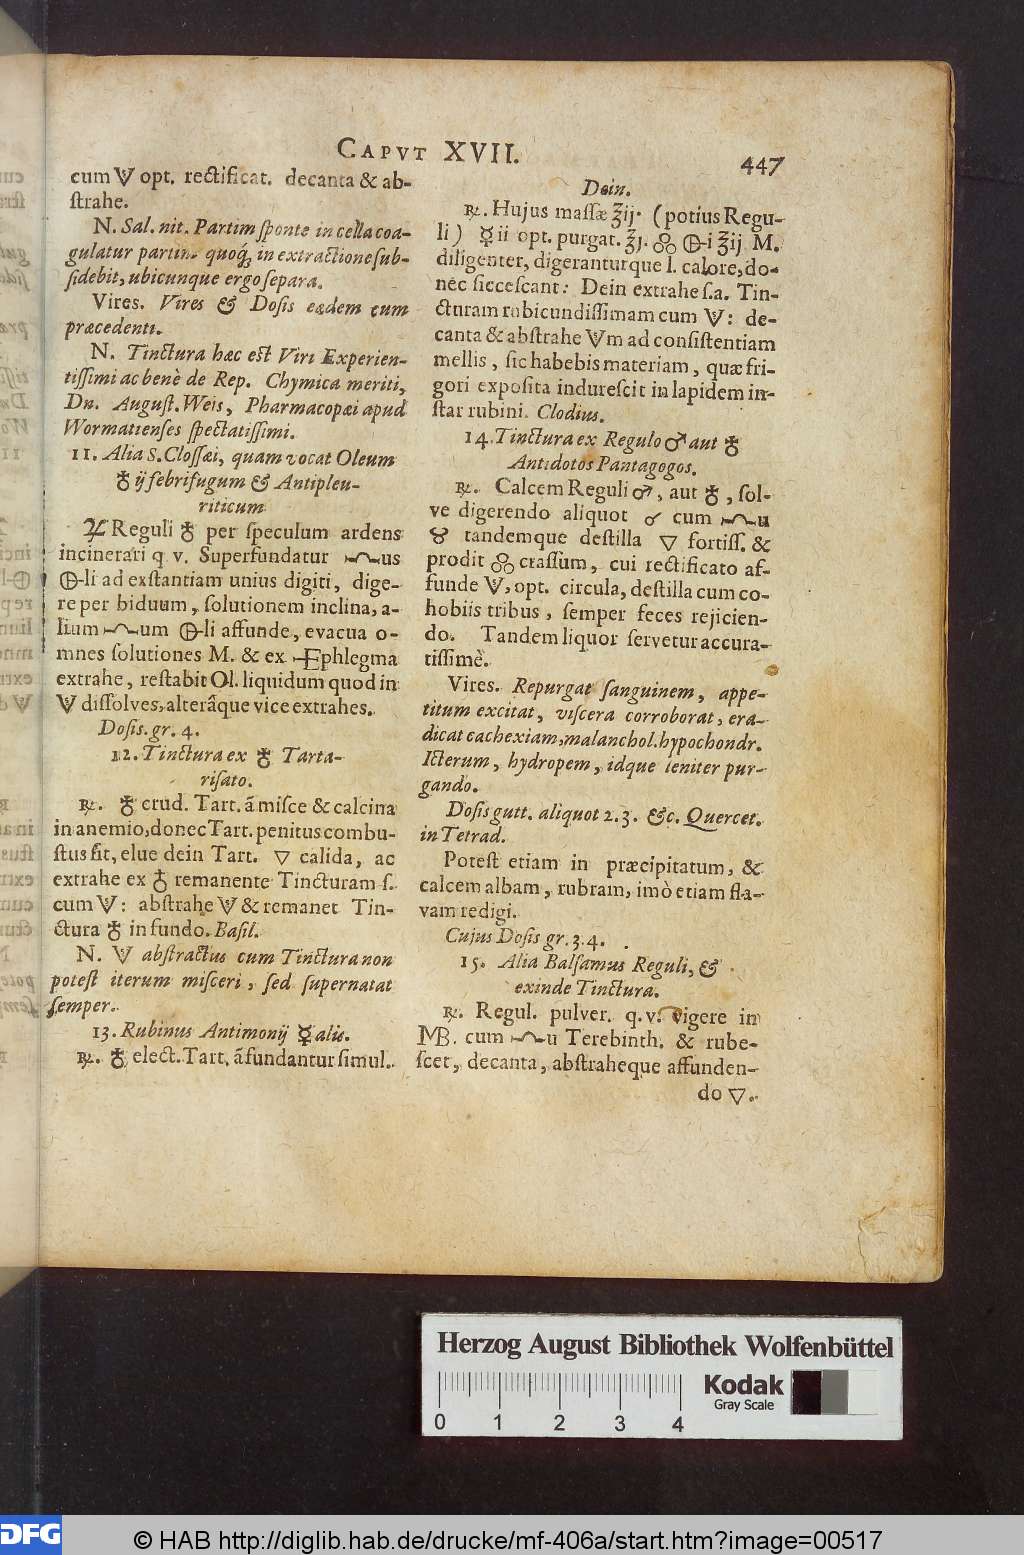 CAPVT XVII.
447
cum 🜋 opt. rectificat. decanta & ab-
strahe.
N. Sal. nit. Partim sponte in cella coa-
gulatur partim quoq́, in extractione sub-
sidebit, ubicunque ergo separa.
Vires. Vires & Dosis eædem cum
præcedenti.
N. Tinctura hæc est Viri Experien-
tissimi ac benè de Rep. Chymica meriti,
Dn. August. Weis, Pharmacopæi apud
Wormatienses spectatissimi.
11. Alia S. Clossæi, quam vocat Oleum
♁ ij febrifugum & Antipleu-
riticum
Reguli ♁ per speculum ardens
incinerari q v. Superfundatur us
li ad exstantiam unius digiti, dige-
re per biduum, solutionem inclina, a-
lium um li affunde, evacua o-
mnes solutiones M. & ex phlegma
extrahe, restabit Ol. liquidum quod in
dissolves, alterâque vice extrahes.
Dosis. gr. 4.
12. Tinctura ex ♁ Tarta-
risato.
℞. ♁ crud. Tart. ā misce & calcina
in anemio, donec Tart. penitus combu-
stus fit, elue dein Tart. ▽ calida, ac
extrahe ex ♁ remanente Tincturam s.
cum : abstrahe & remanet Tin-
ctura ♁ in fundo. Basil.
N. abstractus cum Tinctura non
potest iterum misceri, sed supernatat
semper.
13. Rubinus Antimonij ☿ alis.
℞. ♁ elect. Tart. ā fundantur simul.
Dein.
℞. Hujus massæ ʒij. (potius Regu-
li) ☿ ii opt. purgat. ʒj. i ʒij M.
diligenter, digeranturque l. calore, do-
nec siccescant: Dein extrahe s.a. Tin-
cturam rubicundissimam cum : de-
canta & abstrahe m ad consistentiam
mellis, sic habebis materiam, quæ fri-
gori exposita indurescit in lapidem in-
star rubini. Clodius.
14. Tinctura ex Regulo ♂ aut ♁
Antidotos Pantagogos.
℞. Calcem Reguli ♂, aut ♁, sol-
ve digerendo aliquot cum u
♉ tandemque destilla ▽ fortiss. &
prodit crassum, cui rectificato af-
funde , opt. circula, destilla cum co-
hobiis tribus, semper feces rejicien-
do. Tandem liquor servetur accura-
tissimè.
Vires. Repurgat sanguinem, appe-
titum excitat, viscera corroborat, era-
dicat cachexiam, malanchol. hypochondr.
Icterum, hydropem, idque leniter pur-
gando.
Dosis gutt. aliquot 2. 3. &c. Quercet.
in Tetrad.
Potest etiam in præcipitatum, &
calcem albam, rubram, imò etiam fla-
vam redigi.
Cujus Dosis gr. 3. 4.
15. Alia Balsamus Reguli, &
exinde Tinctura.
℞. Regul. pulver. q. v. Digere in
MB. cum u Terebinth. & rube-
scet, decanta, abstraheque affunden-
do ▽.
Herzog August Bibliothek Wolfenbüttel
Kodak
Gray Scale
0 1 2 3 4
DFG
© HAB http://diglib.hab.de/drucke/mf-406a/start.htm?image=00517